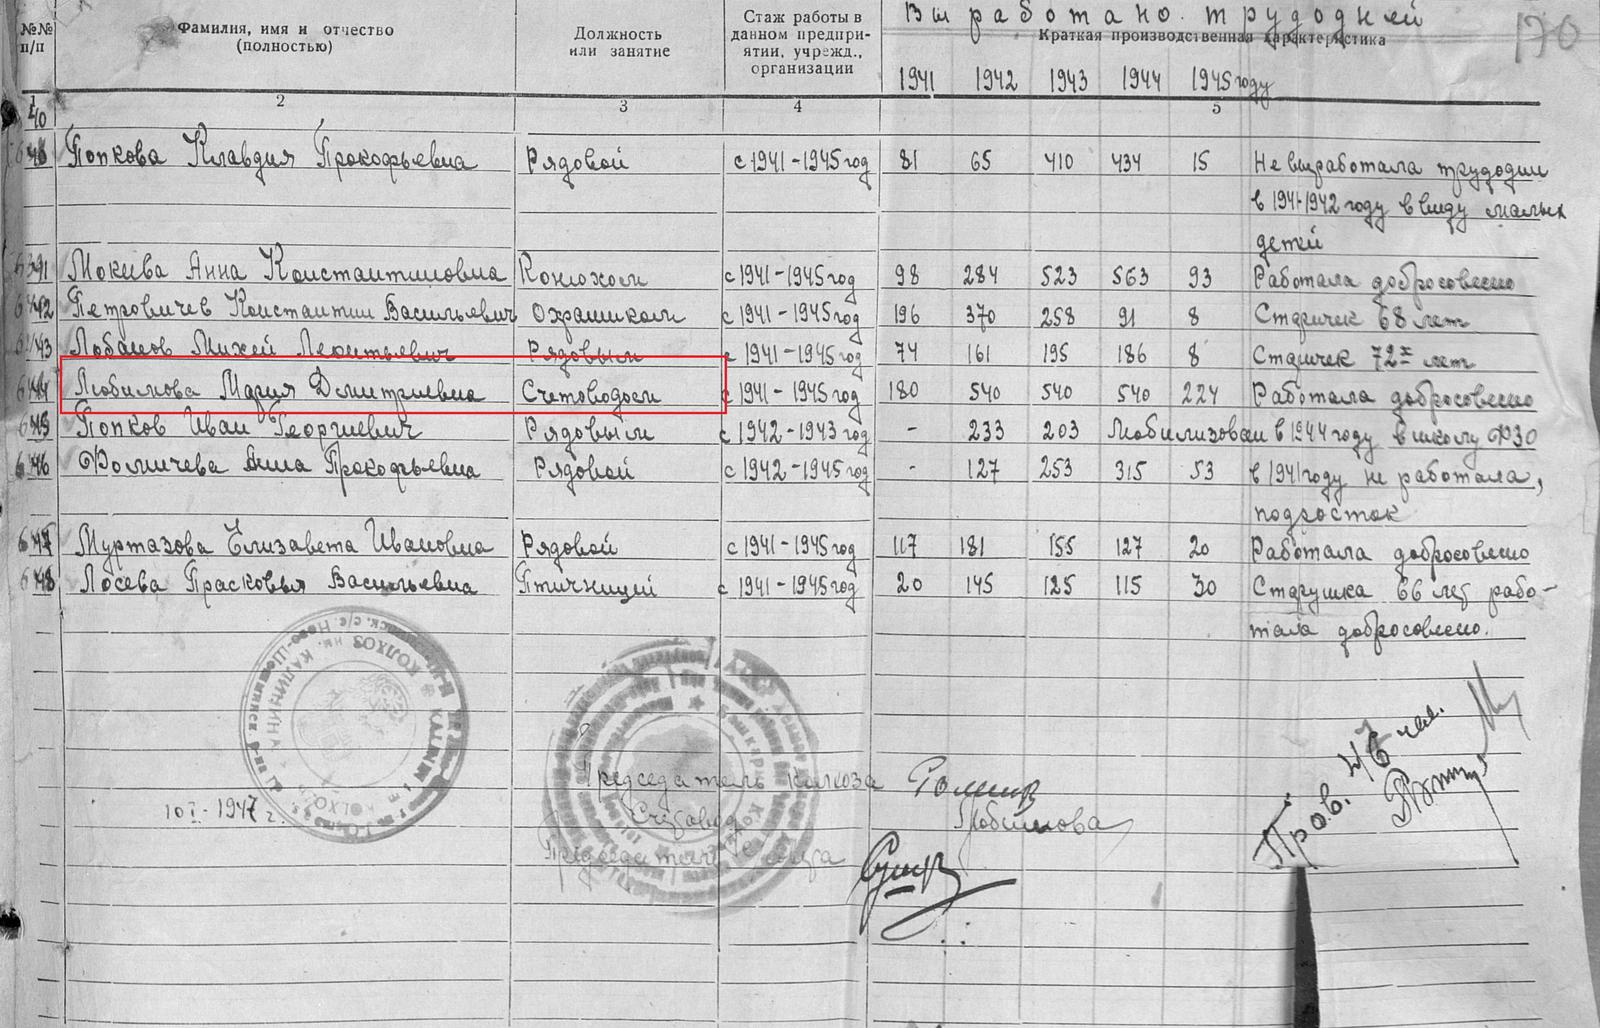 №№ п/п
Фамилия, имя и отчество (полностью)
Должность или занятие
Стаж работы в данном предприятии, учрежд., организации
Выработано трудодней
Краткая производственная характеристика
170
1941 1942 1943 1944 1945 году
1 2 3 4 5
Попкова Клавдия Прокофьевна Рядовой с 1941-1945 год 81 65 410 434 15 Не выработала трудодни
в 1941-1942 году ввиду малых
детей
Мокева Анна Константиновна Конюхом с 1941-1945 год 98 284 523 563 93 Работала добросовесно
Петровичев Константин Васильевич Охранником с 1941-1945 год 196 370 258 91 8 Старичек 68 лет
Лобанов Михей Леонтьевич Рядовым с 1941-1945 год 74 161 195 186 8 Старичек 72х лет
Любимова Мария Дмитриевна Счетоводом с 1941-1945 год 180 540 540 540 224 Работала добросовесно
Попков Иван Георгиевич Рядовым с 1942-1943 год - 233 203 Мобилизован в 1944 году в школу ФЗО
Фомичева Анна Прокофьевна Рядовой с 1942-1945 год - 127 253 315 53 в 1941 году не работала,
подросток
Муртазова Елизавета Ивановна Рядовой с 1941-1945 год 117 181 155 127 20 Работала добросовесно
Лосева Прасковья Васильевна Птичницей с 1941-1945 год 20 145 125 115 30 Старушка 66 лет рабо-
тала добросовесно.
КОЛХОЗ им. КАЛИНИНА
Председатель колхоза
Счетовод Любимова
10 I - 1947 г.
Пров.